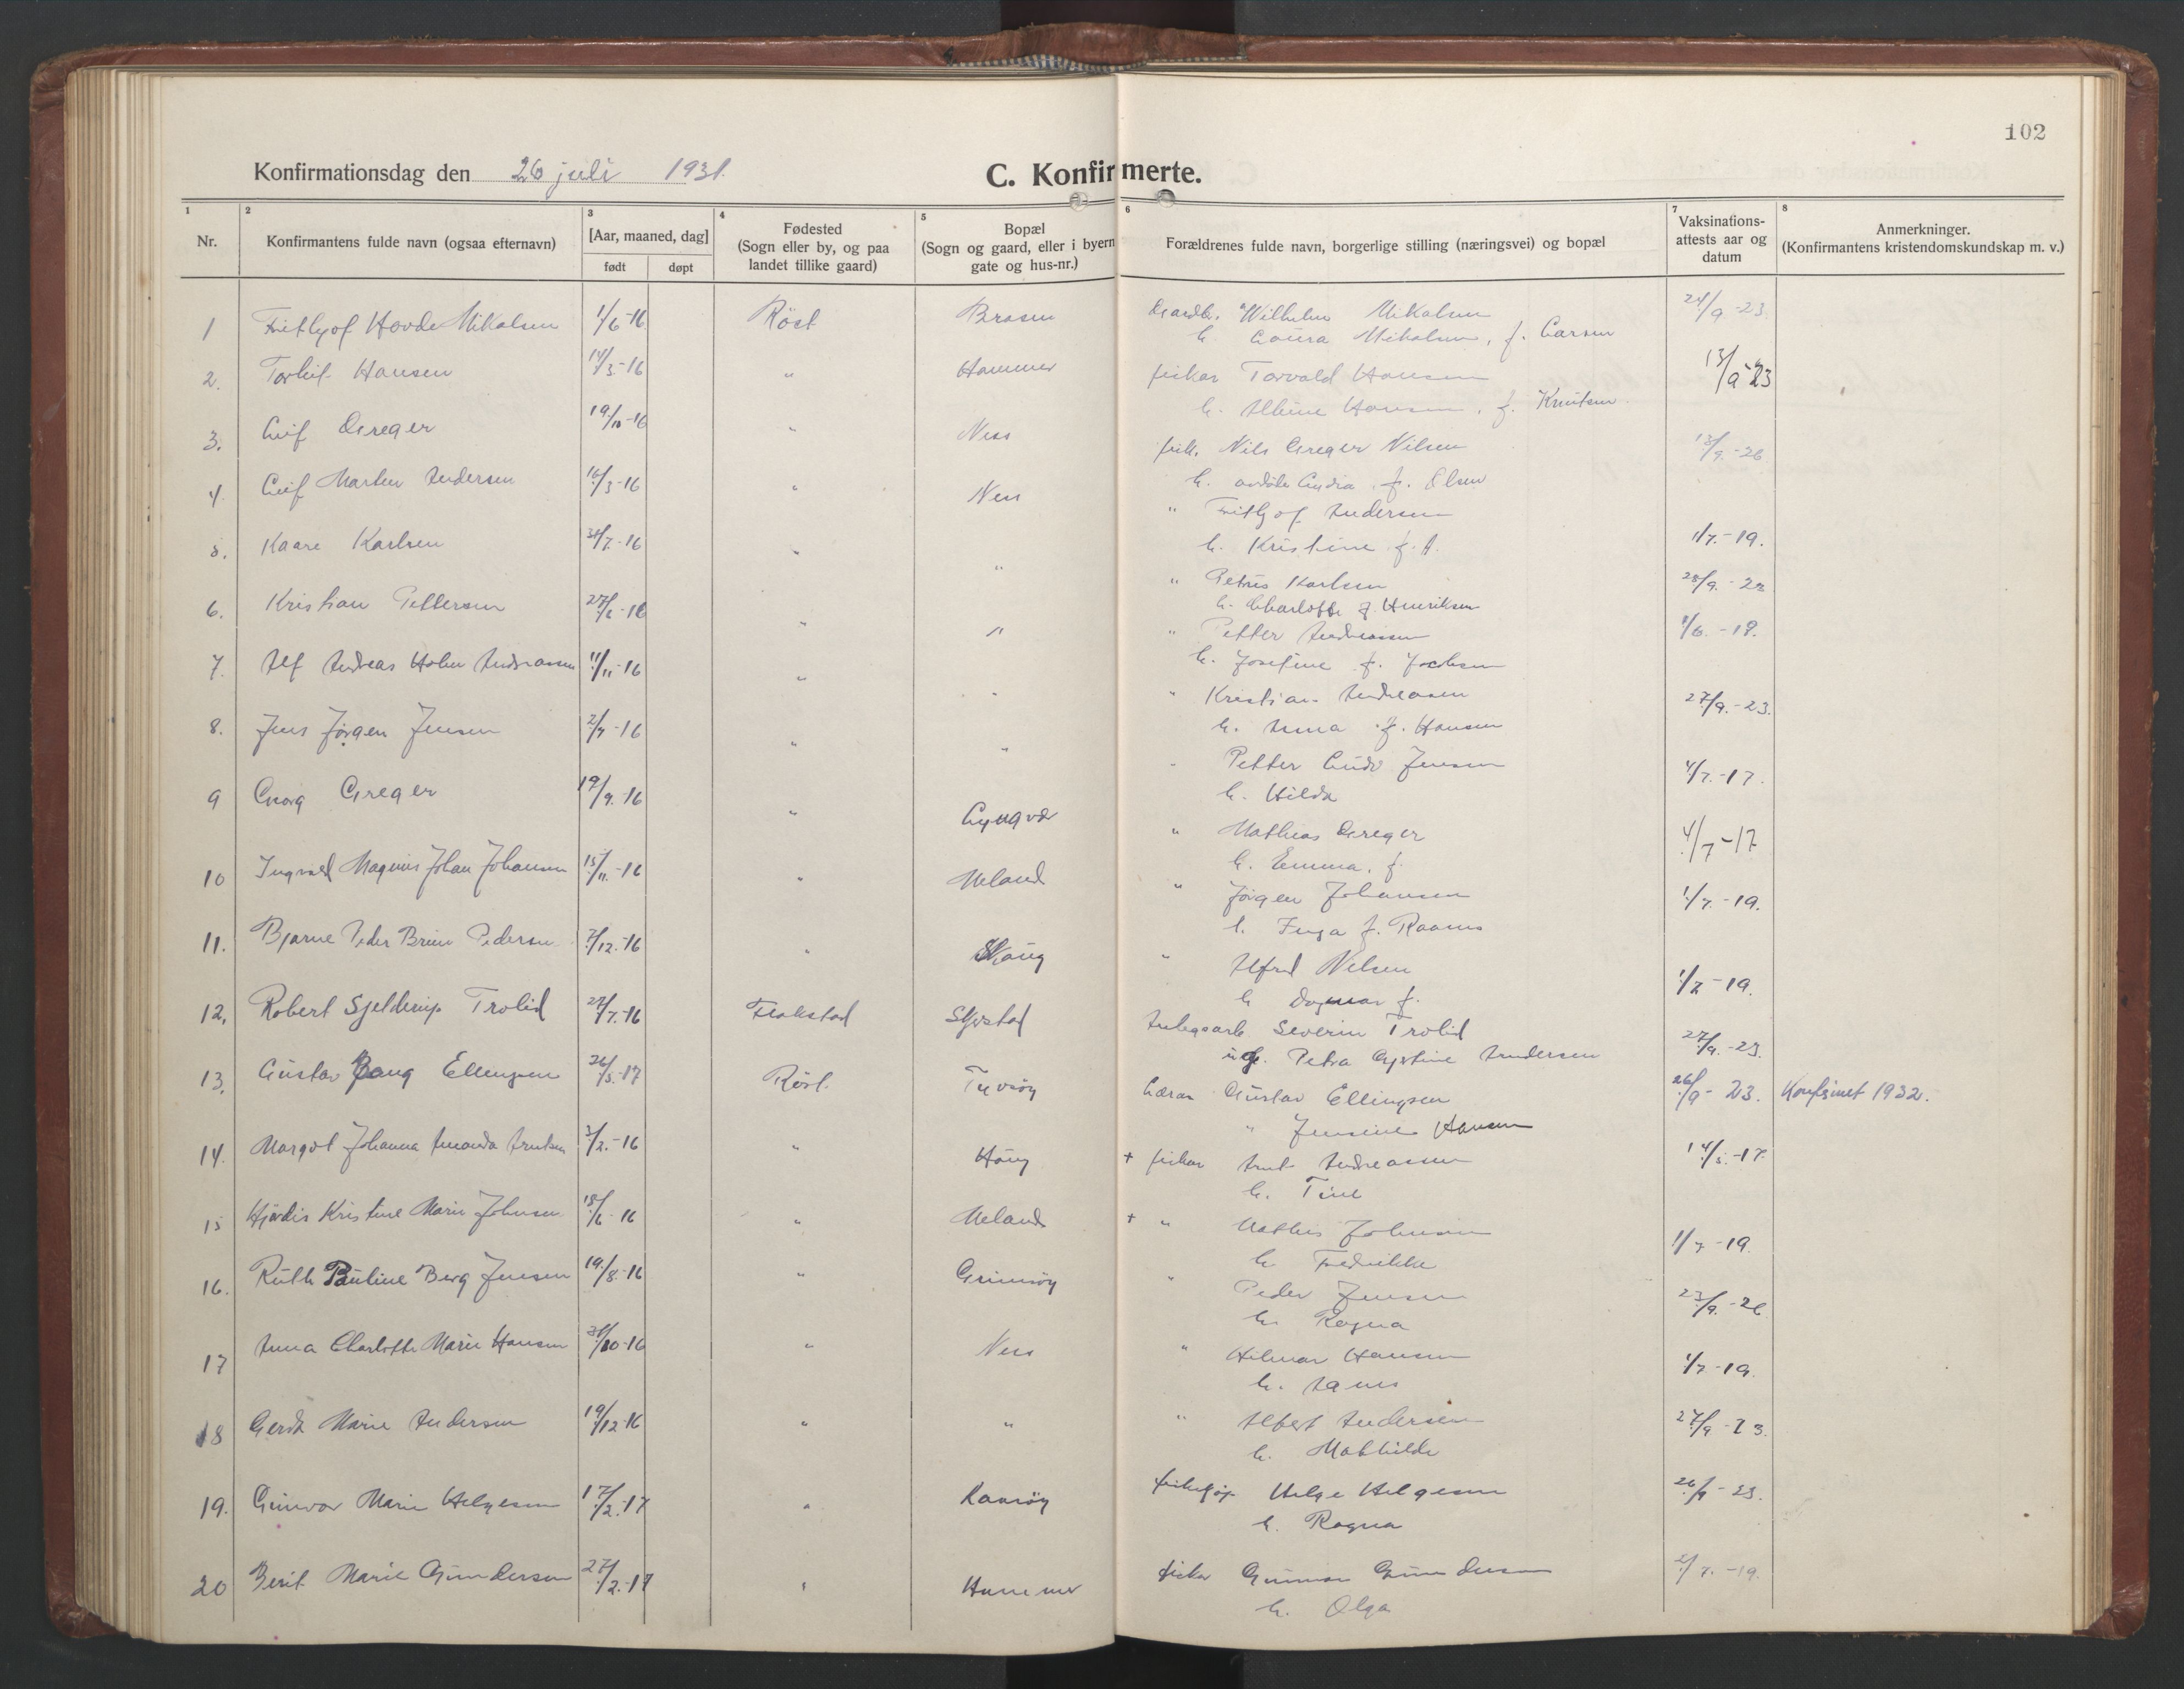 102
Konfirmationsdag den 26 juli 1931.
C. Konfirmerte.
1 2 3 4 5 6 7 8
Nr.
Konfirmantens fulde navn (ogsaa efternavn)
[Aar, maaned, dag]
født døpt
Fødested
(Sogn eller by, og paa
landet tillike gaard)
Bopæl
(Sogn og gaard, eller i byern
gate og hus-nr.)
Forældrenes fulde navn, borgerlige stilling (næringsvei) og bopæl
Vaksinations-
attests aar og
datum
Anmerkninger.
(Konfirmantens kristendomskundskap m. v.)
1 Frithjof Hovde Mikalsen 1/6-16 Röst Brasen Gardbr. Wilhelm Mikalsen 24/9-23.
h. Laura Mikalsen, f. Larsen
2. Torleif Hansen 14/3-16 " Hammer fisker Torvald Hansen 13/9-23
h. Albine Hansen, f. Knutsen.
3. Leif Greger 19/10-16 " Ness fisk. Nils Greger Nilsen 13/9-26
h. f. Olsen
4. Leif Marten Andersen 16/3-16 " Ness " Fritjof Andersen 1/7.-19.
h. Kristine f. A.
5. Kaare Karlsen 31/7.-16 " " " Petrus Karlsen 25/9.-22
h. Charlotte f. Henriksen
6. Kristian Pettersen 27/6-16 " " " Petter Andreassen 1/6.-19.
h. Josefine f. Jacobsen
7. Alf Andreas Holm Andreassen 11/11-16 " " " Kristian Andreasen 27/9.-23.
h. Anna f. Hansen
8. Jens Jörgen Jensen 2/7-16 " " " Petter Ludv Jensen 4/7.-17.
h. Hilda
9 Georg Greger 17/9.-16 " Lyngvær " Mathias Greger 4/7-17
h. Emma, f.
10 Ingvald Magnus Johan Johansen 15/11.-16 " Meland " Jörgen Johansen 1/7.-19.
h. Inga f.
11. Bjarne Peder Brun Pedersen 7/12.-16 " " Alfred Nelsen 1/7-19.
h Dagmar f.
12. Robert Sjelderup Trolid 27/7.-16 Flakstad Anlegsarb Severin Trolid 27/9.-23.
Petra Andersen
13. Gustav Bang Ellingsen 26/5.-17 Röst. Tyvsöy Lærar Gustav Ellingsen 26/9-23. Konfirmet 1932.
" Jensine Hansen
14. Margot Johanna Amanda Arntsen 3/2.-16 " Haug + fisker Arnt Andreassen 14/5.-17.
h. Tine
15 Hjördis Kristine Marie Johnsen 18/6-16 " Meland + " Mathis Johnsen 1/7-19.
h Fredrikke
16. Ruth Pauline Berg Jensen 19/8-16 " Grimsöy " Peder Jensen 23/9.-26
h. Ragna
17 Anna Charlotte Marie Hansen 31/10-16 " Ness " Hilmar Hansen 1/7-19.
h. Agnes
18 Gerda Marie Andersen 19/12-16 " " " Albert Andersen 27/9-23.
h. Mathilde
19. Gunvor Marie Helgesen 17/2.-17 " Ramsöy Helge Helgesen 26/9-23.
h. Ragna
20 Berit Marie Gundersen 27/2.-17 " Hammer fisker Gunnar Gundersen 2/7.-19.
h. Olga